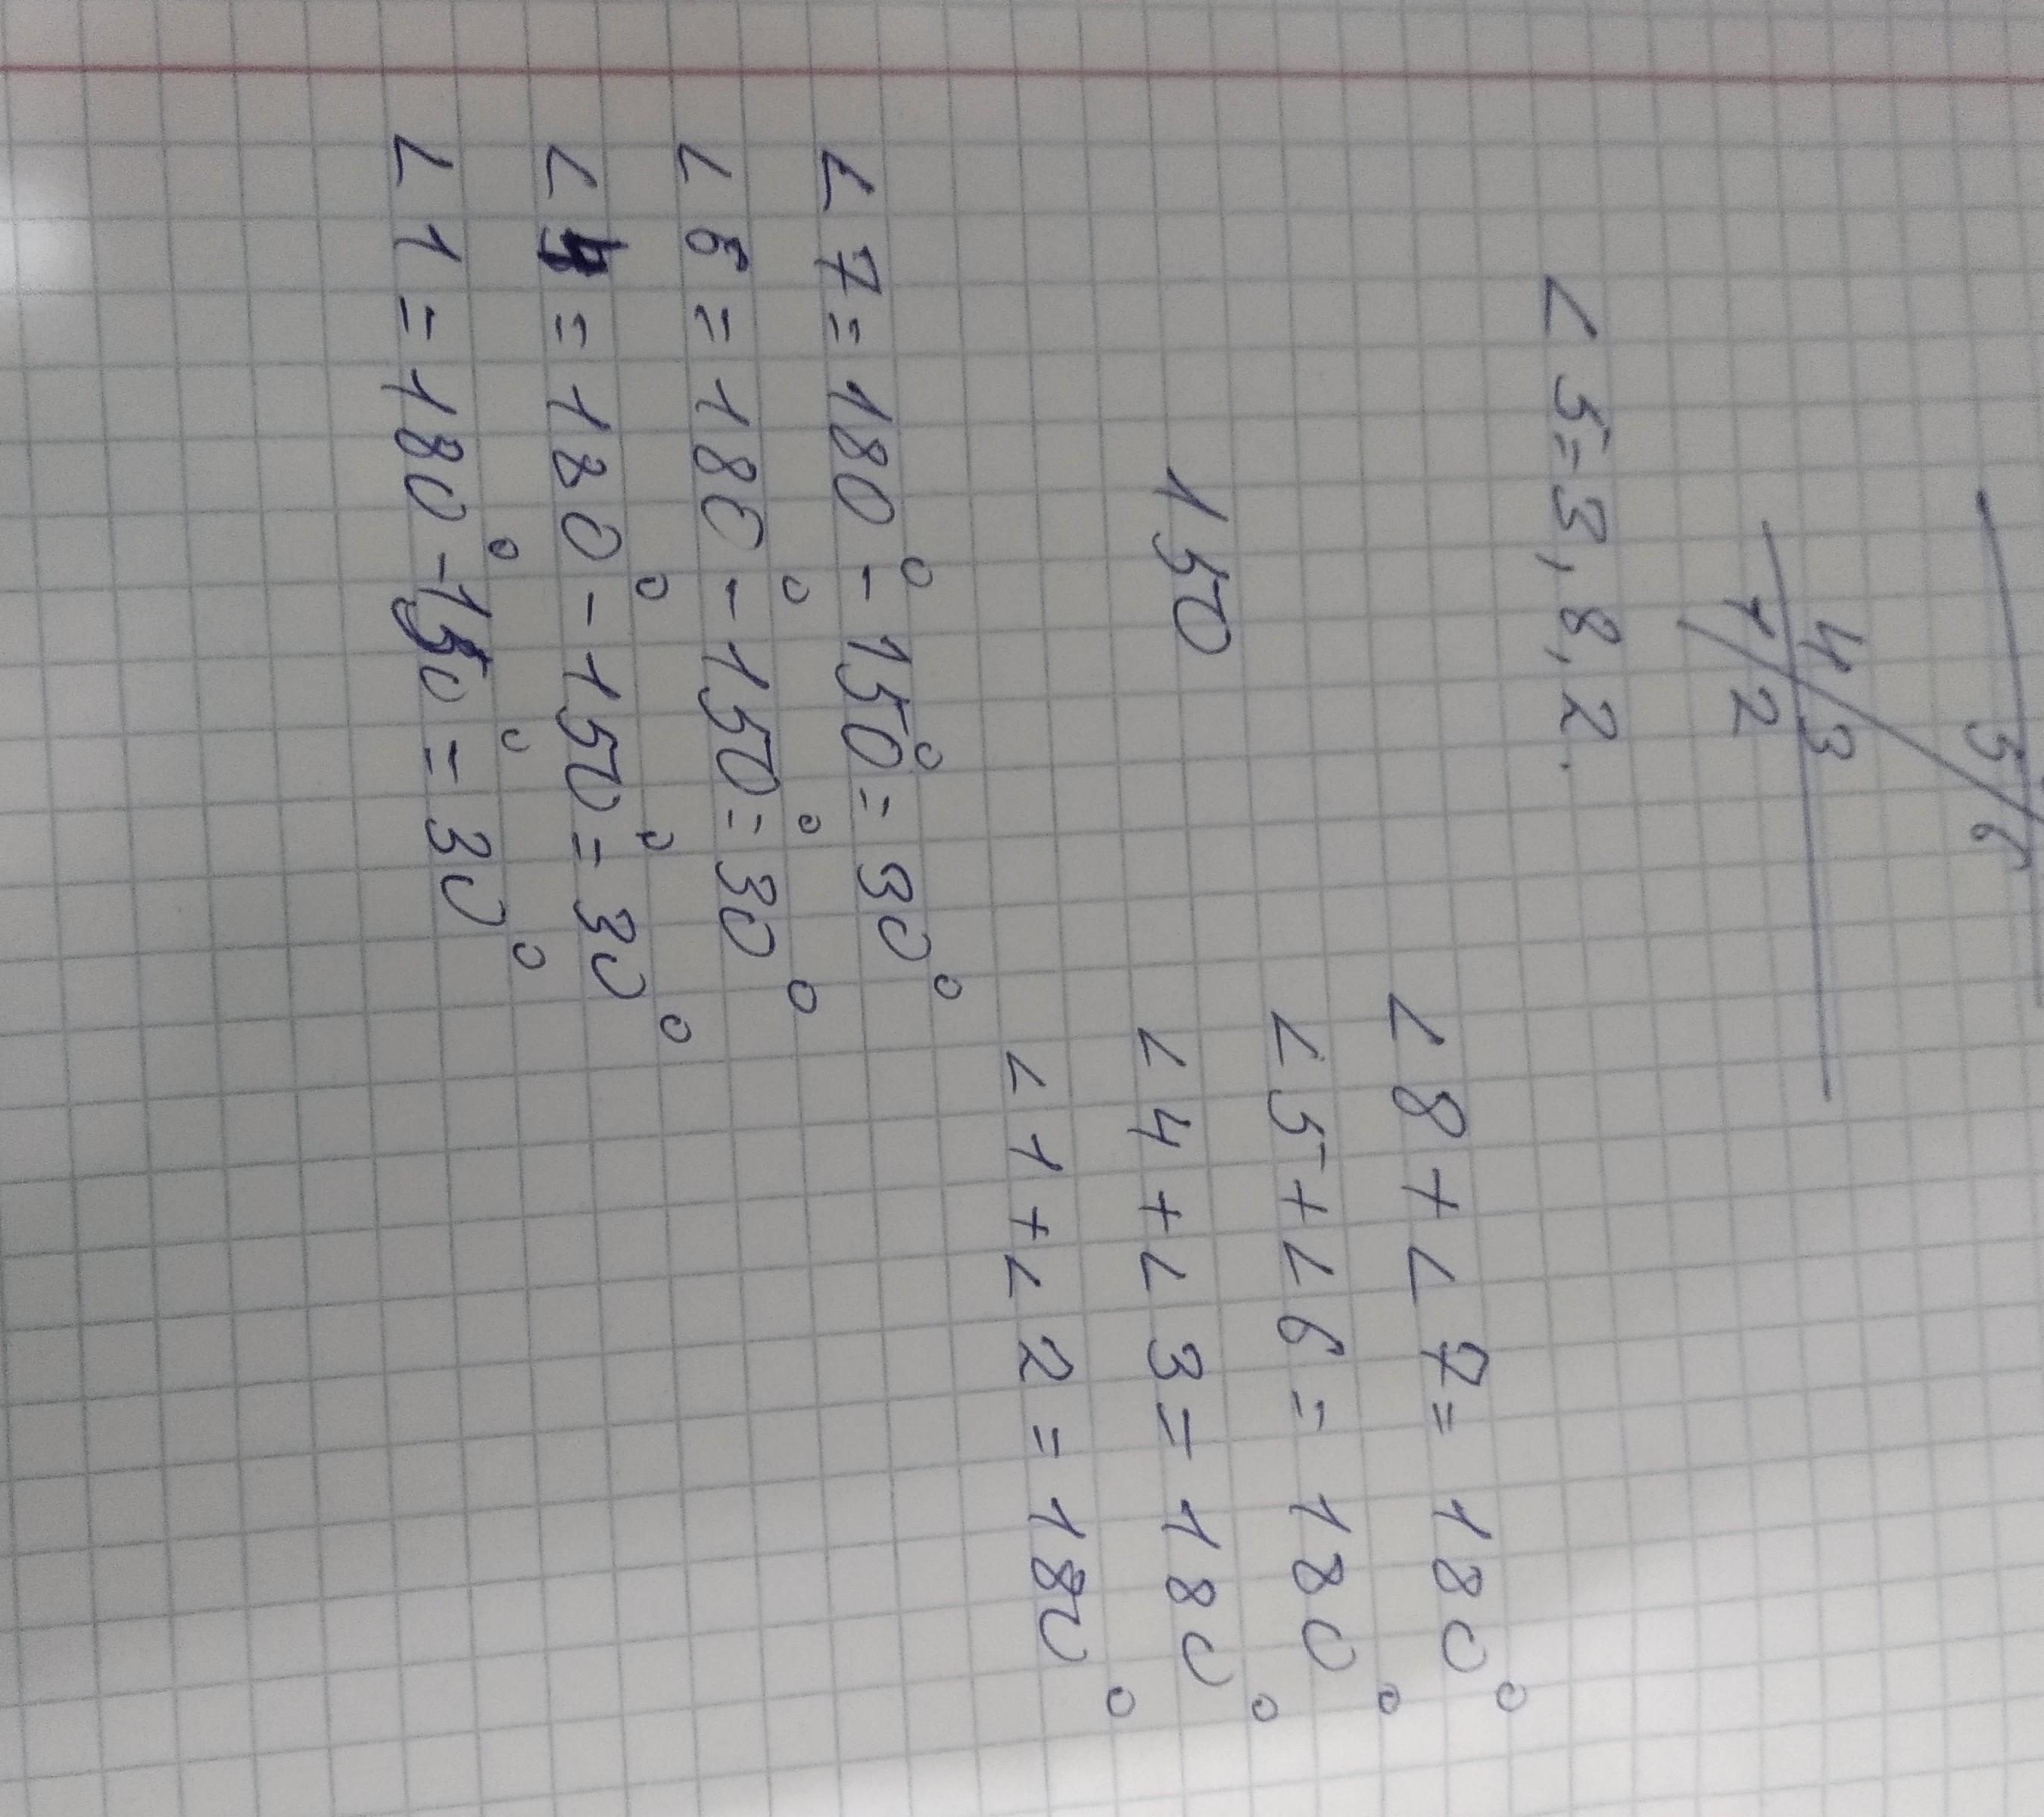 5/6
4/3
1/2
∠5=3,8,2.
∠8+∠7=180°
∠5+∠6=180°
150
∠4+∠3=180°
∠1+∠2=180°
∠7=180°-150°=30°
∠6=180°-150°=30°
∠4=180°-150°=30°
∠1=180°-150°=30°